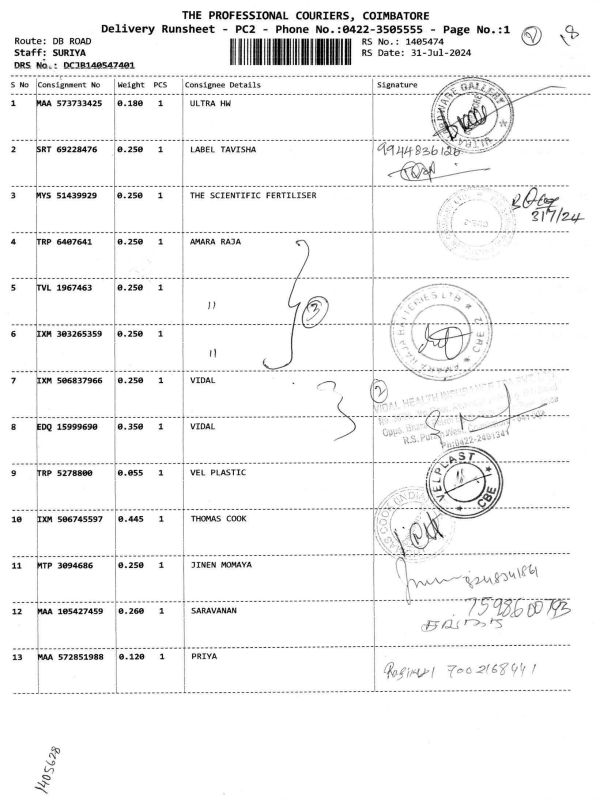 THE PROFESSIONAL COURIERS, COIMBATORE
Delivery Runsheet - PC2 - Phone No.:0422-3505555 - Page No.:1
2 18
Route: DB ROAD
RS No.: 1405474
Staff: SURIYA
RS Date: 31-Jul-2024
DRS No.: DCJB140547401
S No Consignment No Weight PCS Consignee Details Signature
1 MAA 573733425 0.180 1 ULTRA HW
2 SRT 69228476 0.250 1 LABEL TAVISHA 9944836126
3 MYS 51439929 0.250 1 THE SCIENTIFIC FERTILISER
31/7/24
4 TRP 6407641 0.250 1 AMARA RAJA
5 TVL 1967463 0.250 1 "
3
6 IXM 303265359 0.250 1 "
AMARA RAJA BATTERIES LTD CBE 12
7 IXM 506837966 0.250 1 VIDAL 2
VIDAL HEALTH INSURANCE
8 EDQ 15999690 0.350 1 VIDAL
Ph:0422-2491341
9 TRP 5278800 0.055 1 VEL PLASTIC
VELPLAST CBE
10 IXM 506745597 0.445 1 THOMAS COOK
11 MTP 3094686 0.250 1 JINEN MOMAYA
12 MAA 105427459 0.260 1 SARAVANAN
13 MAA 572851988 0.120 1 PRIYA 7002168441
1405628